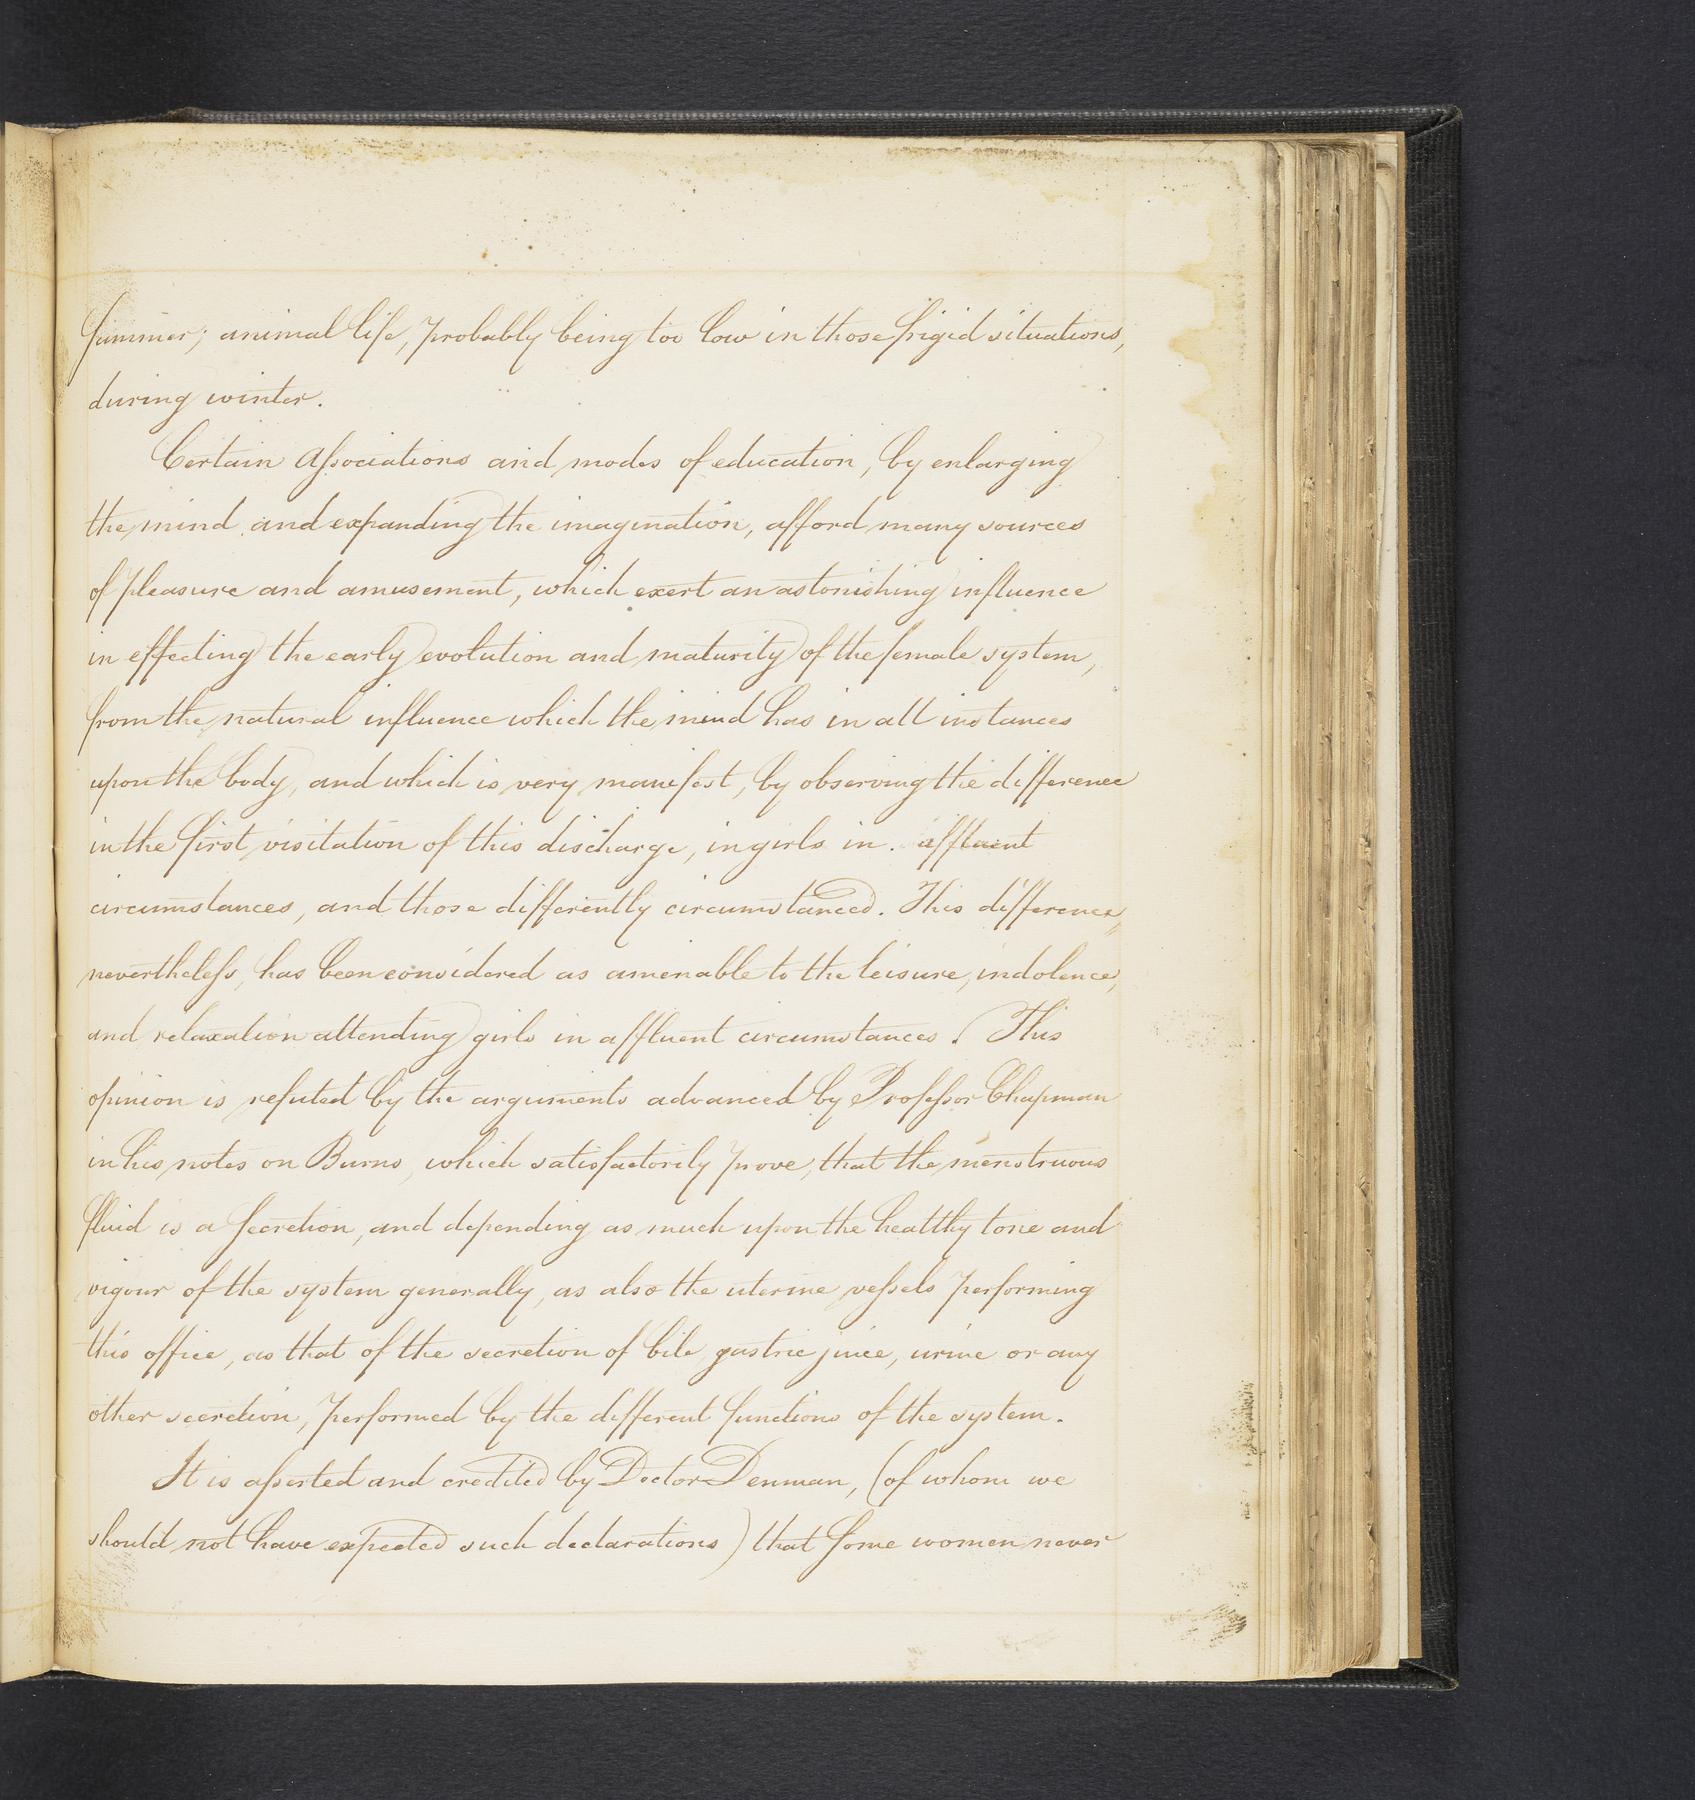 Summer; animal life, probably being too low in those frigid situations,
during winter.
Certain Aſsociations and modes of education, by enlarging
the mind and expanding the imagination, afford many sources
of pleasure and amusement, which exert an astonishing influence
in effecting the early evolution and maturity of the female system,
from the natural influence which the mind has in all instances
upon the body, and which is very manifest, by observing the difference
in the first visitation of this discharge, in girls in affluent
circumstances, and those differently circumstanced. This difference,
nevertheleſs, has been considered as amenable to the leisure, indolence,
and relaxation attending girls in affluent circumstances. This
opinion is refuted by the arguments advanced by Profeſsor Chapman
in his notes on Burns, which satisfactorily prove, that the menstruous
fluid is a Secretion, and depending as much upon the healthy tone and
vigour of the system generally, as also the uterine veſsels performing
this office, as that of the secretion of bile, gastric juice, urine or any
other secretion, performed by the different functions of the system.
It is aſserted and credited by Doctor Denman, (of whom we
should not have expected such declarations) that Some women never